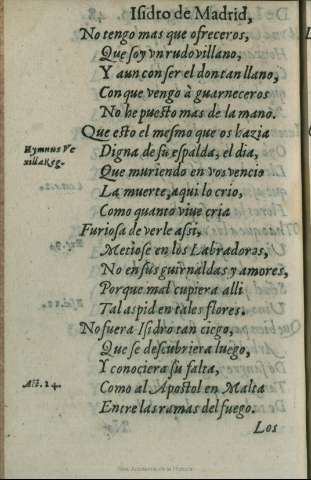 Isidro de Madrid,
No tengo mas que ofreceros,
Que soy vn rudo villano,
Y aun con ser el don tan llano,
Con que vengo à guarneceros
No he puesto mas de la mano.
Que esto el mesmo que os hazia
Hymnus Ve
xilla Reg.
Digna de su espalda, el dia,
Que muriendo en vos vencio
La muerte, aqui lo crio,
Como quanto viue cria
Furiosa de verle assi,
Metiose en los Labradoras,
No en sus guirnaldas y amores,
Porque mal cupiera alli
Tal aspid en tales flores.
No fuera Isidro tan ciego,
Que se descubriera luego,
Y conociera su falta,
Act. 24.
Como al Apostol en Malta
Entre las ramas del fuego.
Los
Real Academia de la Historia